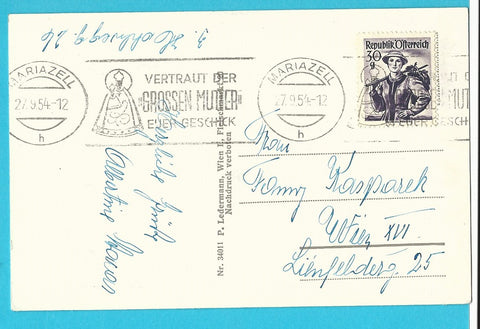 MARIAZELL
27.9.54-12
h
VERTRAUT DER
GROSSEN MUTTER
EUER GESCHICK
MARIAZELL
27.9.54-12
h
Republik Österreich
30 g
EUER GESCHICK
Herzliche Grüße
Albertine
Nr. 34011 P. Ledermann, Wien I., Fleischmarkt
Nachdruck verboten
Frau
Fanny Kasparek
Wien XVI.
Lienfelderg. 25